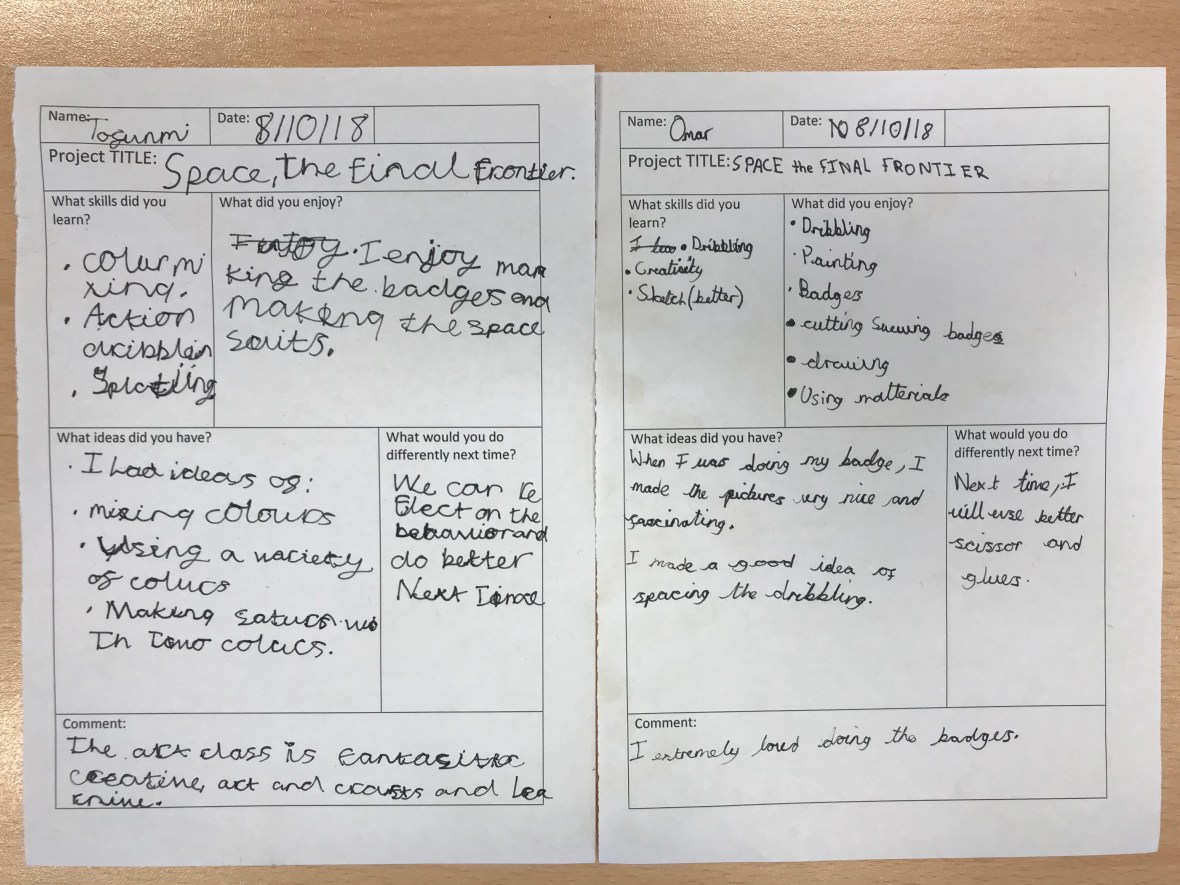 Name: Tosunmi
Date: 8/10/18
Project TITLE: Space, the final frontier.
What skills did you
learn?
• colur mi
xing.
• Action
dribblein
• Splatling
What did you enjoy?
I enjoy mak
king the badges and
Making the space
suits.
What ideas did you have?
• I had ideas of:
• mixing colours
• Using a variety
of colurs
• Making saturn wi
th two colurs.
What would you do
differently next time?
We can re
flect on the
behavior and
do better
Next Time
Comment:
The art class is fantasitic
creative, art and crafts and lea
rning.
Name: Omar
Date: 8/10/18
Project TITLE: SPACE the FINAL FRONTIER
What skills did you
learn?
• Dribbling
• Creativity
• Sketch (better)
What did you enjoy?
• Dribbling
• Painting
• Badges
• cutting Suewing badges
• drawing
• Using matterials
What ideas did you have?
When I was doing my badge, I
made the pictures very nice and
fascinating.
I made a good idea of
spacing the dribbling.
What would you do
differently next time?
Next time, I
will use better
scissor and
glues.
Comment:
I extremely loved doing the badges.